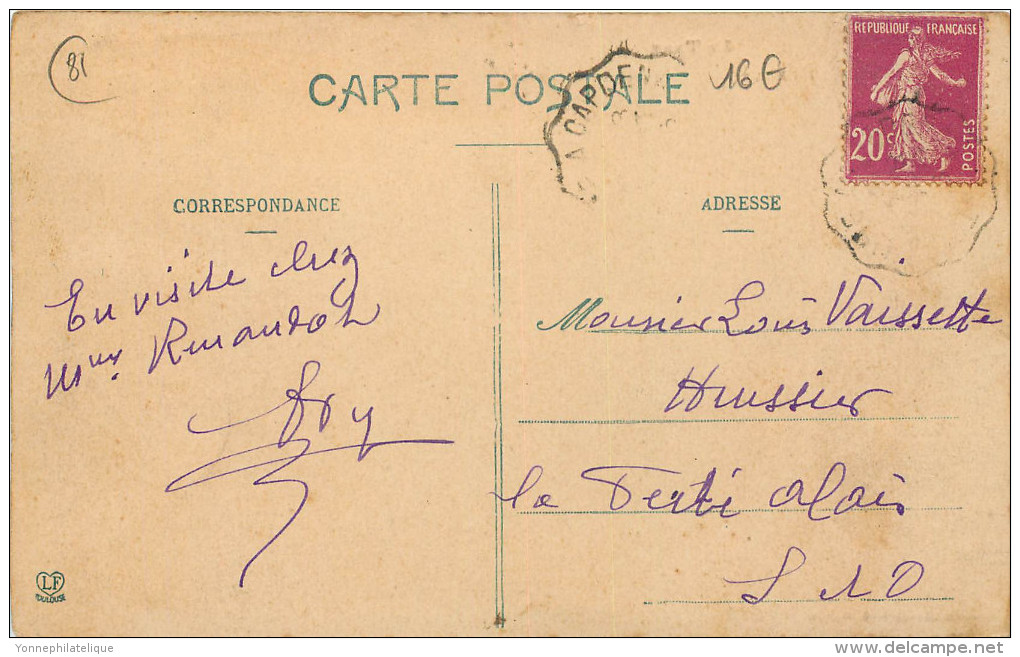 81
CARTE POSTALE
A CAPDEN
16€
REPUBLIQUE FRANÇAISE
20c
POSTES
CORRESPONDANCE
ADRESSE
En visite chez
Mme
Monsieur Louis Vaissette
Huissier
La Ferté Alais
S & O
LF
TOULOUSE
Yonnephilatelique
www.delcampe.net